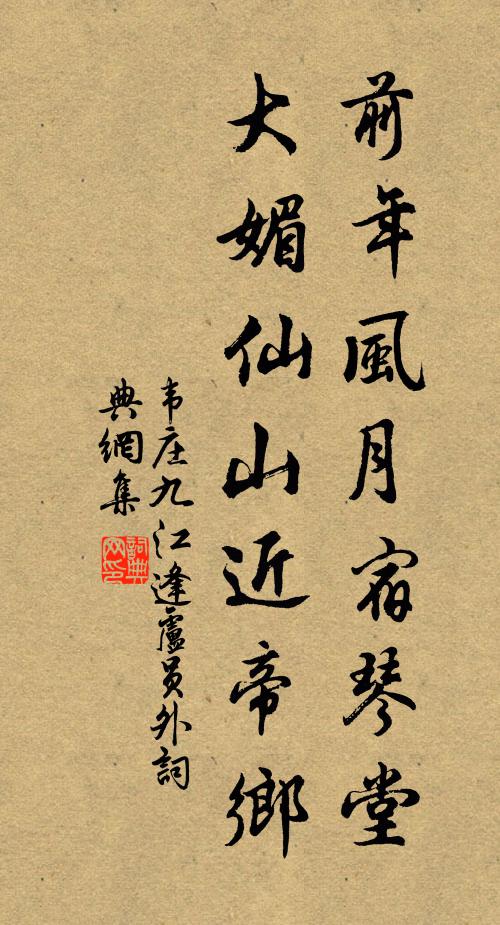 前年風月宿琴堂
大媚仙山近帝鄉
韦庄九江逢盧员外詞
典網集
詞典网印